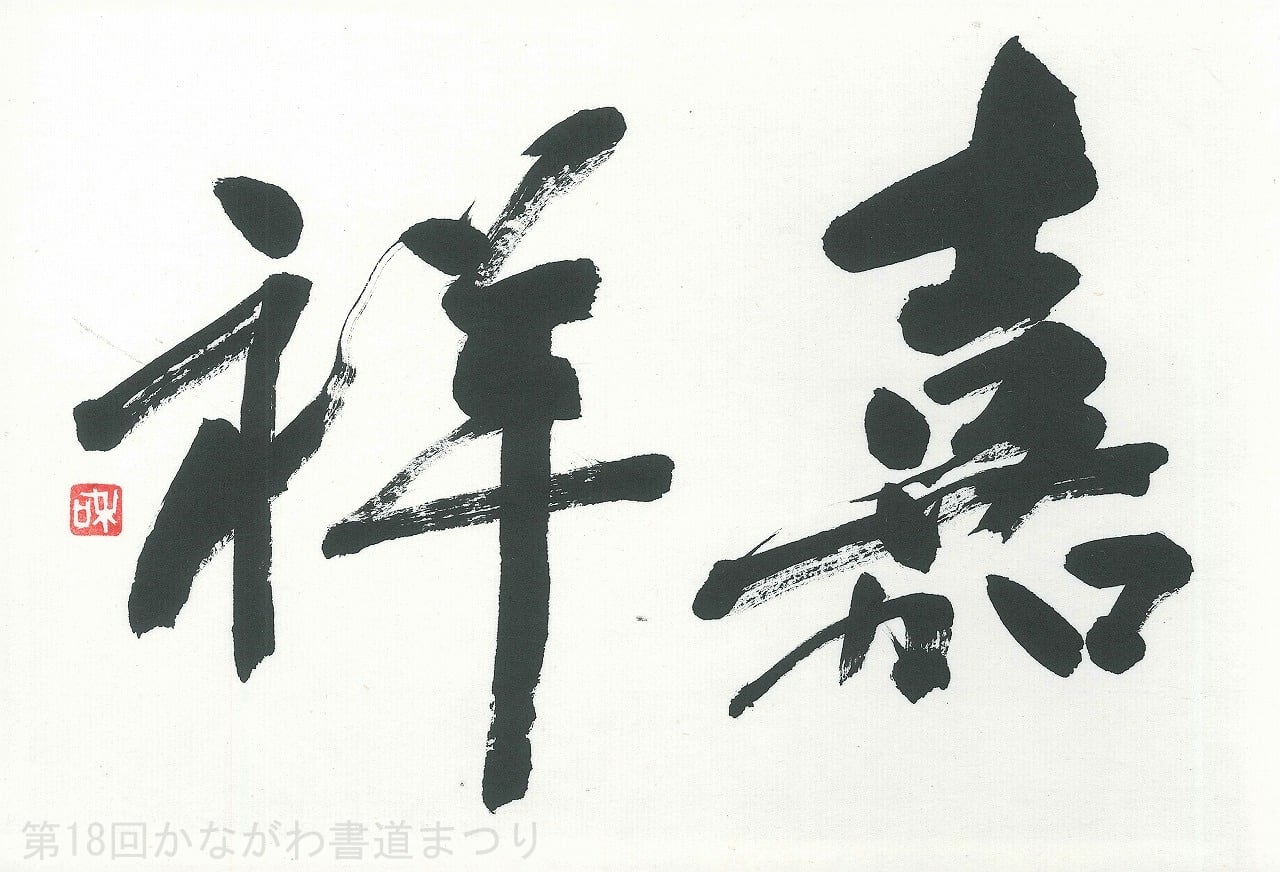 嘉祥
第18回かながわ書道まつり